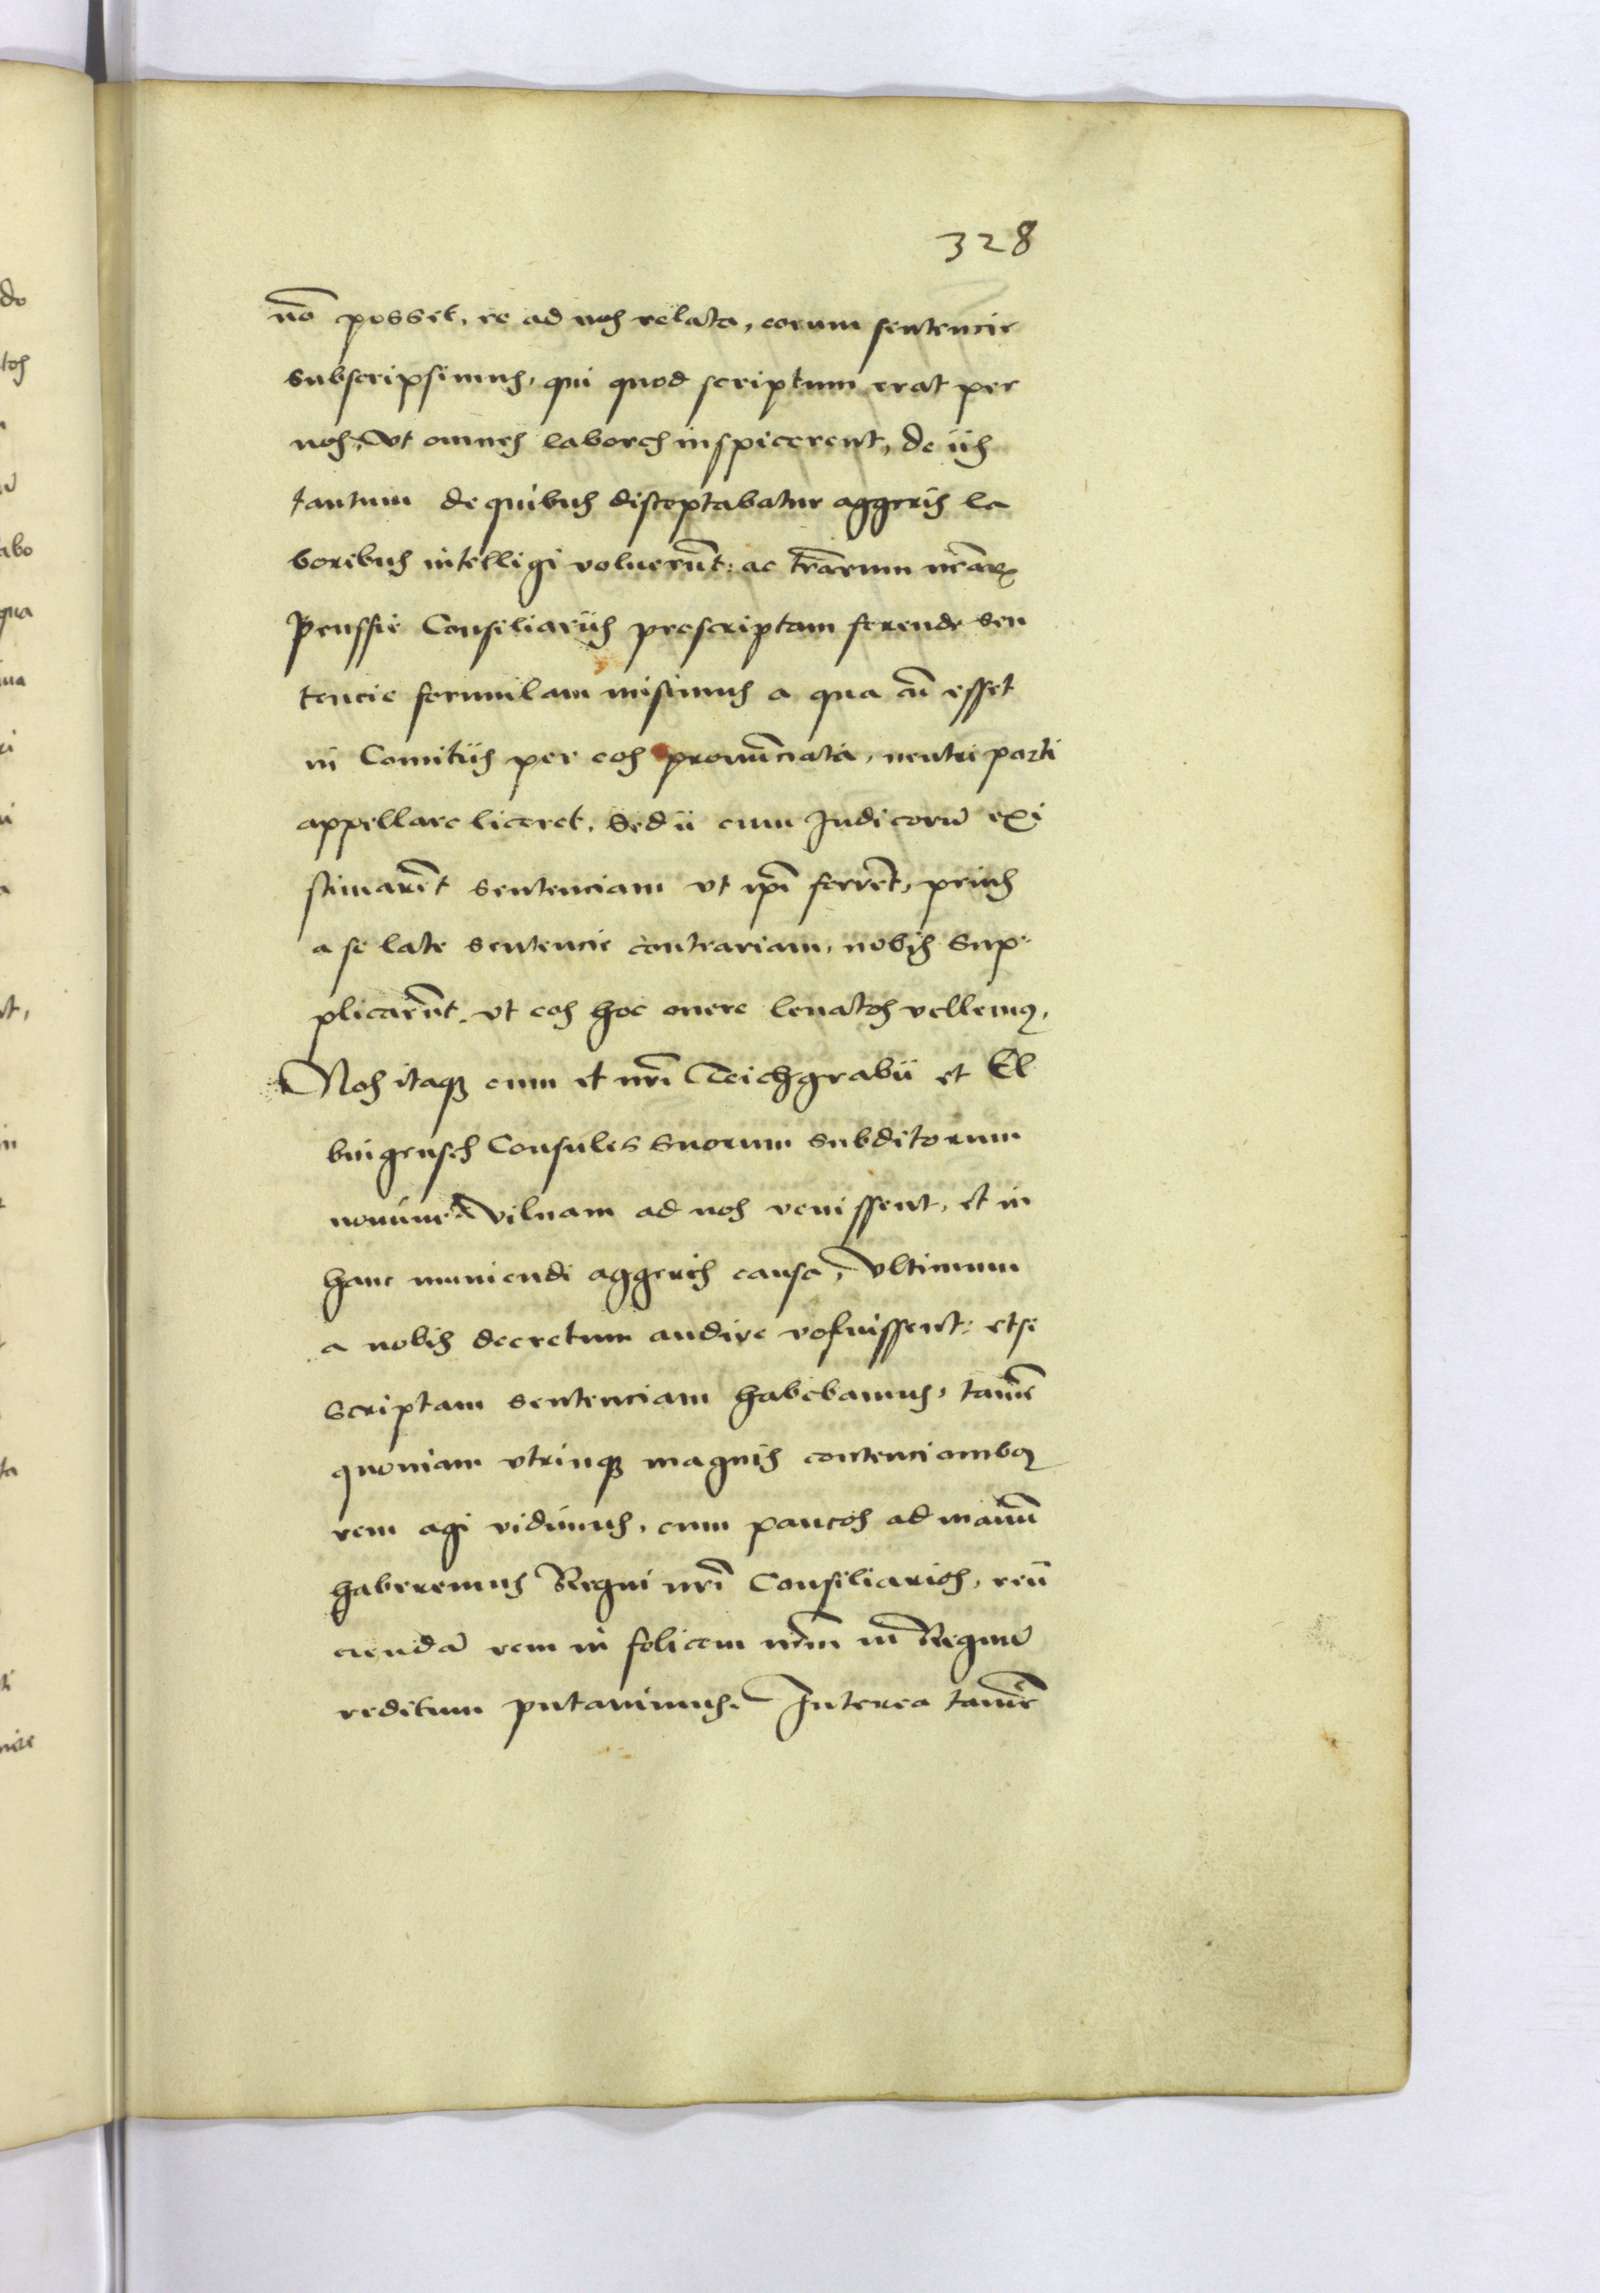 328
nō posset, re ad nos relata, eorum sentencie
subscripsimus, qui quod scriptum erat per
nos, vt omnes labores inspicerent, de iis
tantum de quibus disceptabatur aggeris la
boribus intelligi voluerūt: ac trārum nrāꝝ
Prussie Consiliariis prescriptam ferende sen
tencie formulam misimus a qua cū esset
in Comitiis per eos pronūnciata, neutri parti
appellare liceret, Sed ii cum Judicorū exi
stimarēt sentenciam vt ipī ferrēt, prius
a se late sentencie contrariam, nobis sup
plicarūt, vt eos hoc onere leuatos vellemꝰ,
Nos itaqꝫ cum et nrī Teichgrabii et El
bingenses Consules suorum subditorum
nomine Vilnam ad nos venissent, et in
hanc muniendi aggeris causa, vltimum
a nobis decretum audire voluissent: etsi
scriptam sentenciam habebamus, tamē
quoniam vtrinqꝫ magnis contencionibꝰ
rem agi vidimus, cum paucos ad manū
haberemus Regni nrī Consiliarios, reii
ciendā rem in felicem nrm̄ in Regnū
reditum putauimus. Interea tamē